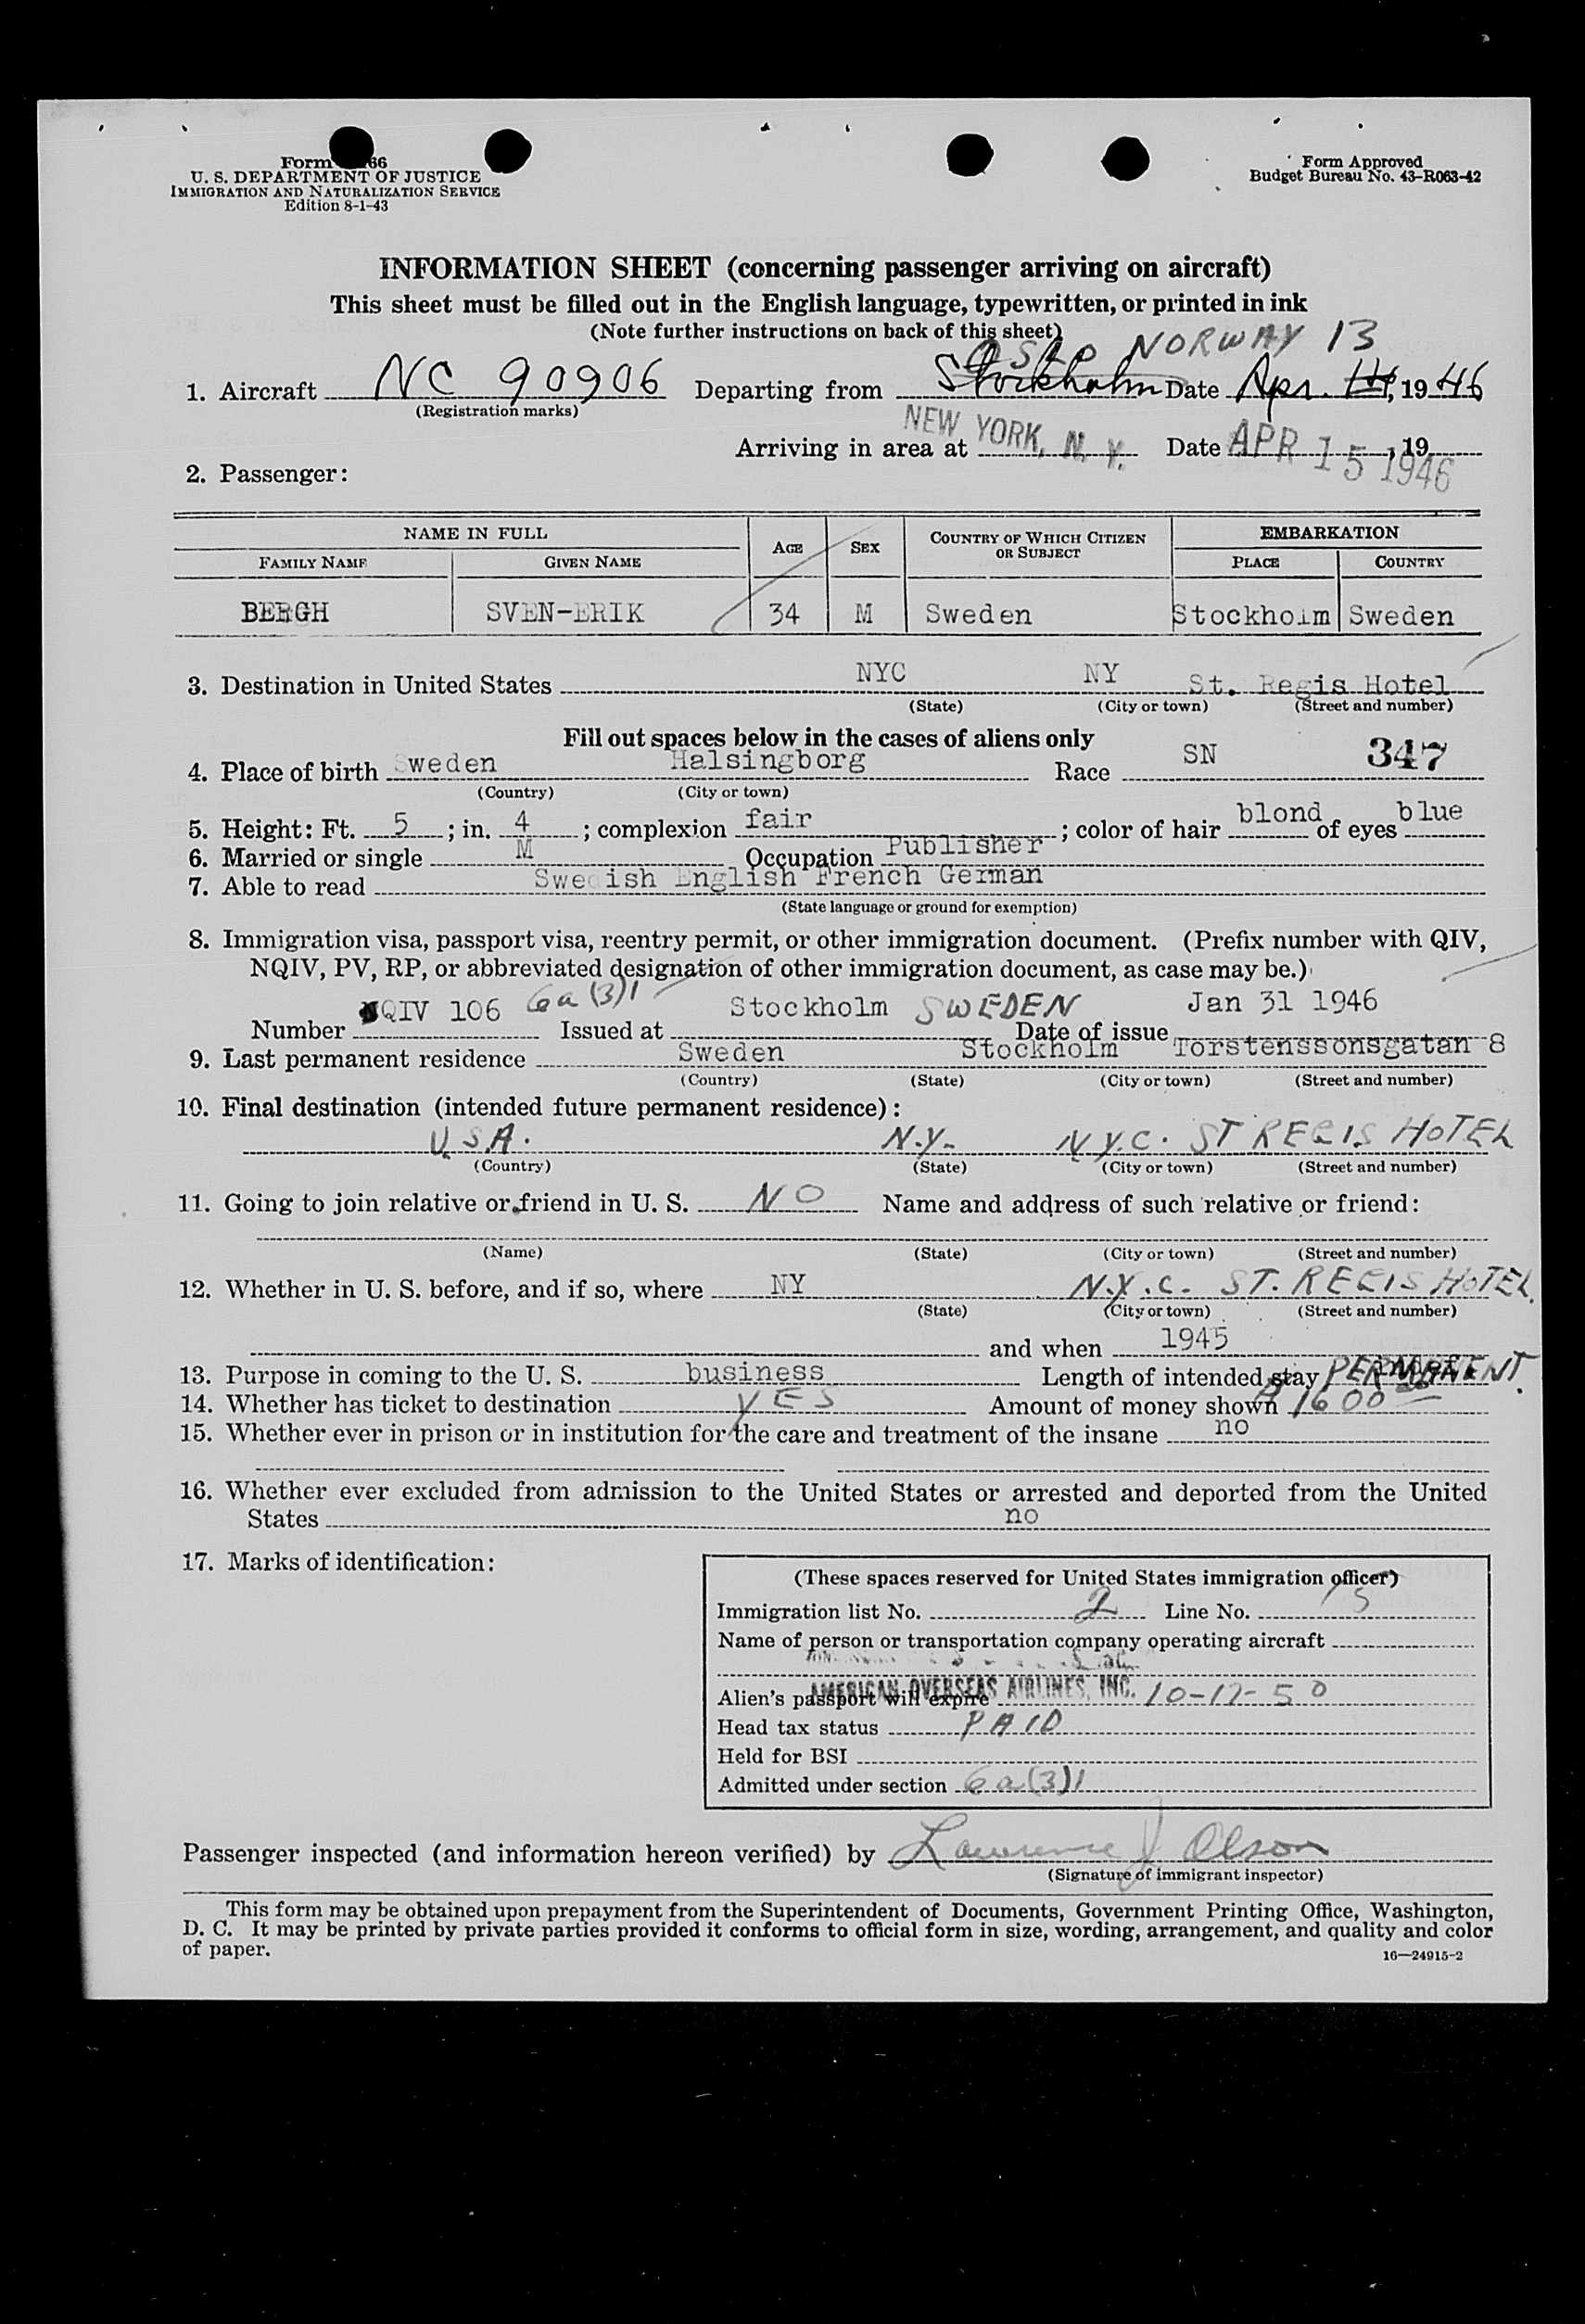 Form 66
U. S. DEPARTMENT OF JUSTICE
IMMIGRATION AND NATURALIZATION SERVICE
Edition 8-1-43
Form Approved
Budget Bureau No. 43-R063-42
INFORMATION SHEET (concerning passenger arriving on aircraft)
This sheet must be filled out in the English language, typewritten, or printed in ink
(Note further instructions on back of this sheet)
OSLO NORWAY 13
1. Aircraft NC 90906 Departing from Stockholm Date Apr. 14, 1946
(Registration marks)
Arriving in area at NEW YORK, N. Y. Date APR 15 1946, 19
2. Passenger:
NAME IN FULL AGE SEX COUNTRY OF WHICH CITIZEN OR SUBJECT EMBARKATION
FAMILY NAME GIVEN NAME PLACE COUNTRY
BERGH SVEN-ERIK 34 M Sweden Stockholm Sweden
3. Destination in United States NYC NY St. Regis Hotel
(State) (City or town) (Street and number)
Fill out spaces below in the cases of aliens only
4. Place of birth Sweden Halsingborg Race SN 347
(Country) (City or town)
5. Height: Ft. 5; in. 4; complexion fair; color of hair blond of eyes blue
6. Married or single M Occupation Publisher
7. Able to read Swedish English French German
(State language or ground for exemption)
8. Immigration visa, passport visa, reentry permit, or other immigration document. (Prefix number with QIV,
NQIV, PV, RP, or abbreviated designation of other immigration document, as case may be.)
Number QIV 106 6a(3)1 Issued at Stockholm SWEDEN Date of issue Jan 31 1946
9. Last permanent residence Sweden Stockholm Torstenssonsgatan 8
(Country) (State) (City or town) (Street and number)
10. Final destination (intended future permanent residence):
U.S.A. N.Y. N.Y.C. ST REGIS HOTEL
(Country) (State) (City or town) (Street and number)
11. Going to join relative or friend in U. S. NO Name and address of such relative or friend:
(Name) (State) (City or town) (Street and number)
12. Whether in U. S. before, and if so, where NY N.Y.C. ST. REGIS HOTEL.
(State) (City or town) (Street and number)
and when 1945
13. Purpose in coming to the U. S. business Length of intended stay PERMANENT.
14. Whether has ticket to destination YES Amount of money shown $1600
15. Whether ever in prison or in institution for the care and treatment of the insane no
16. Whether ever excluded from admission to the United States or arrested and deported from the United
States no
17. Marks of identification:
(These spaces reserved for United States immigration officer)
Immigration list No. 2 Line No. 15
Name of person or transportation company operating aircraft
AMERICAN OVERSEAS AIRLINES, INC.
Alien's passport will expire 10-17-50
Head tax status PAID
Held for BSI
Admitted under section 6a(3)1
Passenger inspected (and information hereon verified) by Lawrence J Olson
(Signature of immigrant inspector)
This form may be obtained upon prepayment from the Superintendent of Documents, Government Printing Office, Washington,
D. C. It may be printed by private parties provided it conforms to official form in size, wording, arrangement, and quality and color
of paper.
16—24915-2